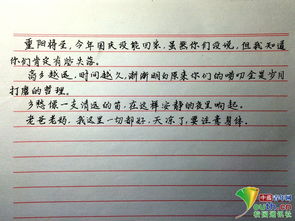 重阳将至，今年国庆没能回家，虽然你们没说，但我知道
你们肯定有些失落。
离乡越远，时间越久，渐渐明白原来你们的唠叨全是岁月
打磨的哲理。
乡愁像一支清远的笛，在这样安静的夜里响起。
老爸老妈，我这里一切都好，天凉了，要注意身体。
中国青年网
youth.cn
校园通讯社